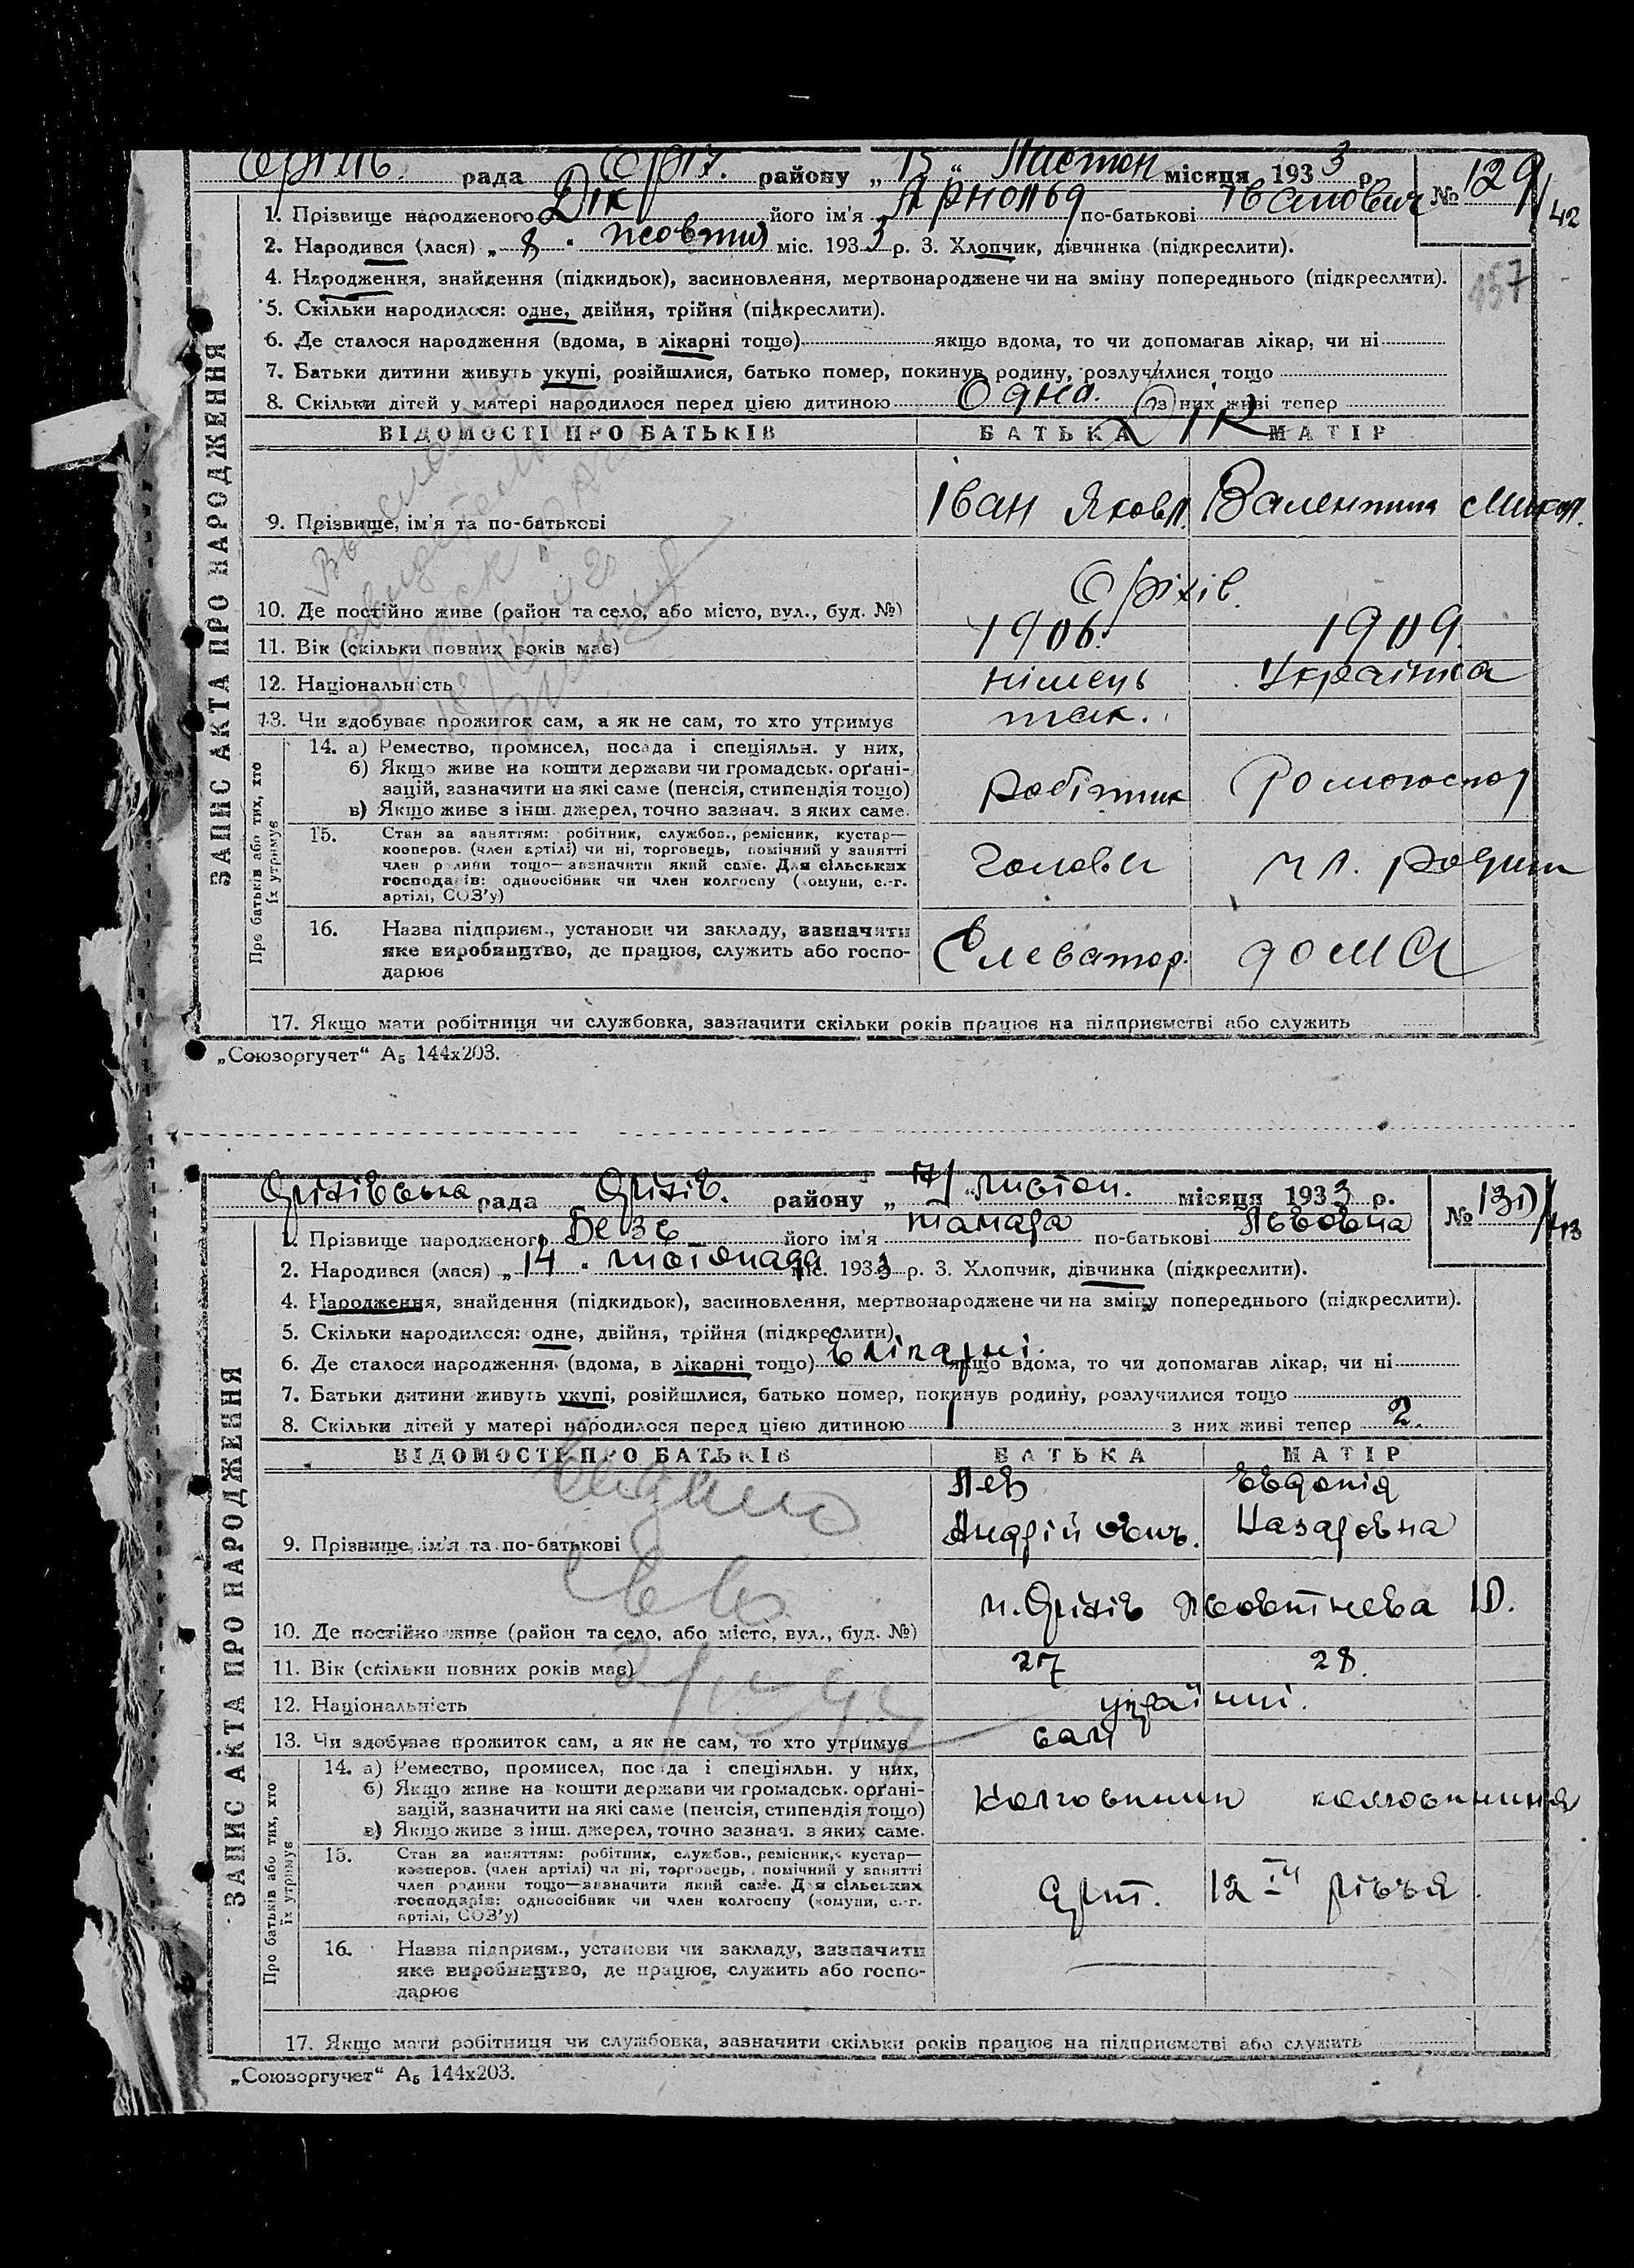 Оріхів. рада Оріх. району „ 15 “ Листоп місяця 1933 р.
№ 129/42
1. Прізвище народженого Дік його ім'я Арнольд по-батькові Іванович
2. Народився (лася) „ 8 “ жовтня міс. 1933 р. 3. Хлопчик, дівчинка (підкреслити).
157
4. Народження, знайдення (підкидьок), засиновлення, мертвонароджене чи на зміну попереднього (підкреслити).
5. Скільки народилося: одне, двійня, трійня (підкреслити).
6. Де сталося народження (вдома, в лікарні тощо) якщо вдома, то чи допомагав лікар, чи ні
7. Батьки дитини живуть укупі, розійшлися, батько помер, покинув родину, розлучилися тощо
8. Скільки дітей у матері народилося перед цією дитиною Одна. з них живі тепер
ЗАПИС АКТА ПРО НАРОДЖЕННЯ
ВІДОМОСТІ ПРО БАТЬКІВ БАТЬКА МАТІР
Дік
9. Прізвище, ім'я та по-батькові Іван Яковл. Валентина Микол.
10. Де постійно живе (район та село, або місто, вул., буд. №) Оріхів.
11. Вік (скільки повних років має) 1906. 1909.
12. Національність німець Українка
13. Чи здобуває прожиток сам, а як не сам, то хто утримує так.
Про батьків або тих, хто їх утримує
14. а) Ремество, промисел, посада і спеціяльн. у них,
б) Якщо живе на кошти держави чи громадськ. організацій, зазначити на які саме (пенсія, стипендія тощо) робітник Домогоспод
в) Якщо живе з інш. джерел, точно зазнач. з яких саме.
15. Стан за заняттям: робітник, службов., ремісник, кустар—
кооперов. (член артілі) чи ні, торговець, помічний у занятті
член родини тощо—зазначити який саме. Для сільських голова чл. родини
господарів: одноосібник чи член колгоспу (комуни, с.-г.
артілі, СОЗ'у)
16. Назва підприєм., установи чи закладу, зазначити
яке виробництво, де працює, служить або госпо- Елеватор. дома
дарює
17. Якщо мати робітниця чи службовка, зазначити скільки років працює на підприємстві або служить
„Союзоргучет“ А5 144х203.
Оріхівська рада Оріхів. району „ 17 “ листоп. місяця 1933 р.
№ 130/43
1. Прізвище народженого його ім'я тамара по-батькові Львовна
2. Народився (лася) „ 14 “ листопада міс. 1933 р. 3. Хлопчик, дівчинка (підкреслити).
4. Народження, знайдення (підкидьок), засиновлення, мертвонароджене чи на зміну попереднього (підкреслити).
5. Скільки народилося: одне, двійня, трійня (підкреслити)
6. Де сталося народження (вдома, в лікарні тощо) в лікарні. якщо вдома, то чи допомагав лікар, чи ні
7. Батьки дитини живуть укупі, розійшлися, батько помер, покинув родину, розлучилися тощо
8. Скільки дітей у матері народилося перед цією дитиною 1 з них живі тепер 2.
ЗАПИС АКТА ПРО НАРОДЖЕННЯ
ВІДОМОСТІ ПРО БАТЬКІВ БАТЬКА МАТІР
Лев Евдокія
9. Прізвище, ім'я та по-батькові Андрійович. Назаровна
10. Де постійно живе (район та село, або місто, вул., буд. №) м. Оріхів Жовтнева 10.
11. Вік (скільки повних років має) 27 28.
12. Національність українці.
13. Чи здобуває прожиток сам, а як не сам, то хто утримує сам
Про батьків або тих, хто їх утримує
14. а) Ремество, промисел, посада і спеціяльн. у них,
б) Якщо живе на кошти держави чи громадськ. організацій, зазначити на які саме (пенсія, стипендія тощо) Колгоспник колгоспниця
в) Якщо живе з інш. джерел, точно зазнач. з яких саме.
15. Стан за заняттям: робітник, службов., ремісник, кустар—
кооперов. (член артілі) чи ні, торговець, помічний у занятті
член родини тощо—зазначити який саме. Для сільських Арт. 12 річчя
господарів: одноосібник чи член колгоспу (комуни, с.-г.
артілі, СОЗ'у)
16. Назва підприєм., установи чи закладу, зазначити
яке виробництво, де працює, служить або госпо-
дарює
17. Якщо мати робітниця чи службовка, зазначити скільки років працює на підприємстві або служить
„Союзоргучет“ А5 144х203.